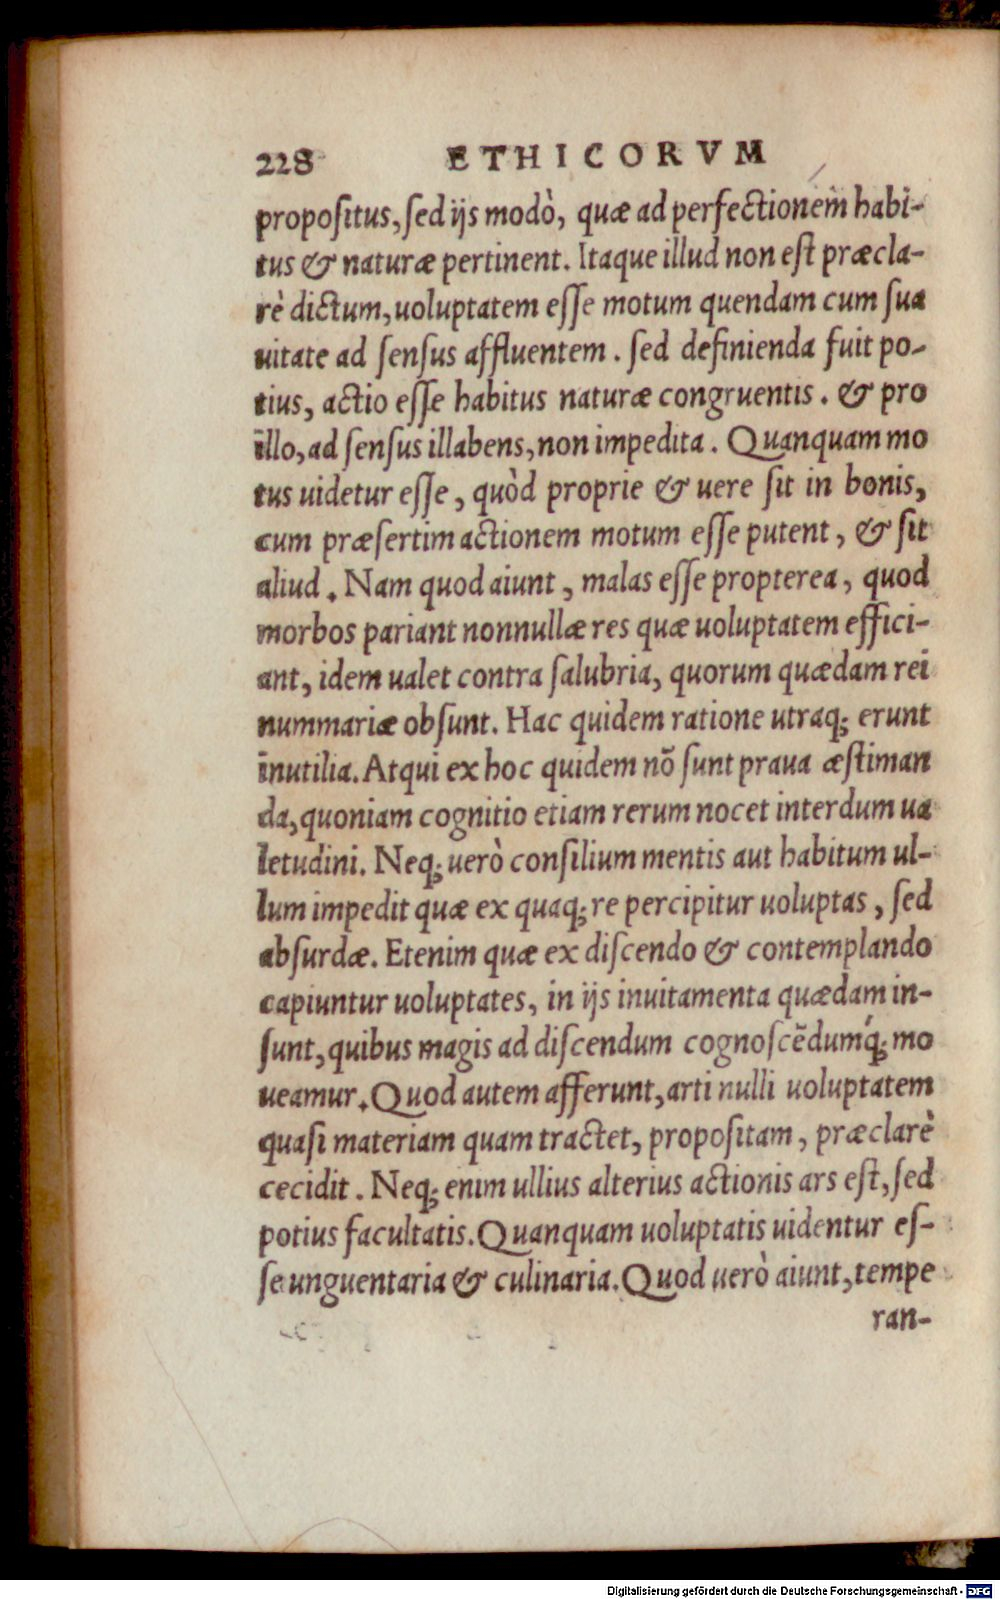 228 ETHICORVM
propoſitus, ſed ijs modò, quæ ad perfectionem habi-
tus & naturæ pertinent. Itaque illud non eſt præcla-
rè dictum, uoluptatem eſſe motum quendam cum ſua
uitate ad ſenſus affluentem. ſed definienda fuit po-
tius, actio eſſe habitus naturæ congruentis. & pro
illo, ad ſenſus illabens, non impedita. Quanquam mo
tus uidetur eſſe, quòd proprie & uere ſit in bonis,
cum præſertim actionem motum eſſe putent, & ſit
aliud. Nam quod aiunt, malas eſſe propterea, quod
morbos pariant nonnullæ res quæ uoluptatem effici-
ant, idem ualet contra ſalubria, quorum quædam rei
nummariæ obſunt. Hac quidem ratione utraq; erunt
inutilia. Atqui ex hoc quidem nõ ſunt praua æſtiman
da, quoniam cognitio etiam rerum nocet interdum ua
letudini. Neq; uerò conſilium mentis aut habitum ul-
lum impedit quæ ex quaq; re percipitur uoluptas, ſed
abſurdæ. Etenim quæ ex diſcendo & contemplando
capiuntur uoluptates, in ijs inuitamenta quædam in-
ſunt, quibus magis ad diſcendum cognoſcẽdumq́; mo
ueamur. Quod autem afferunt, arti nulli uoluptatem
quaſi materiam quam tractet, propoſitam, præclarè
cecidit. Neq; enim ullius alterius actionis ars eſt, ſed
potius facultatis. Quanquam uoluptatis uidentur eſ-
ſe unguentaria & culinaria. Quod uerò aiunt, tempe
ran-
Digitalisierung gefördert durch die Deutsche Forschungsgemeinschaft - DFG